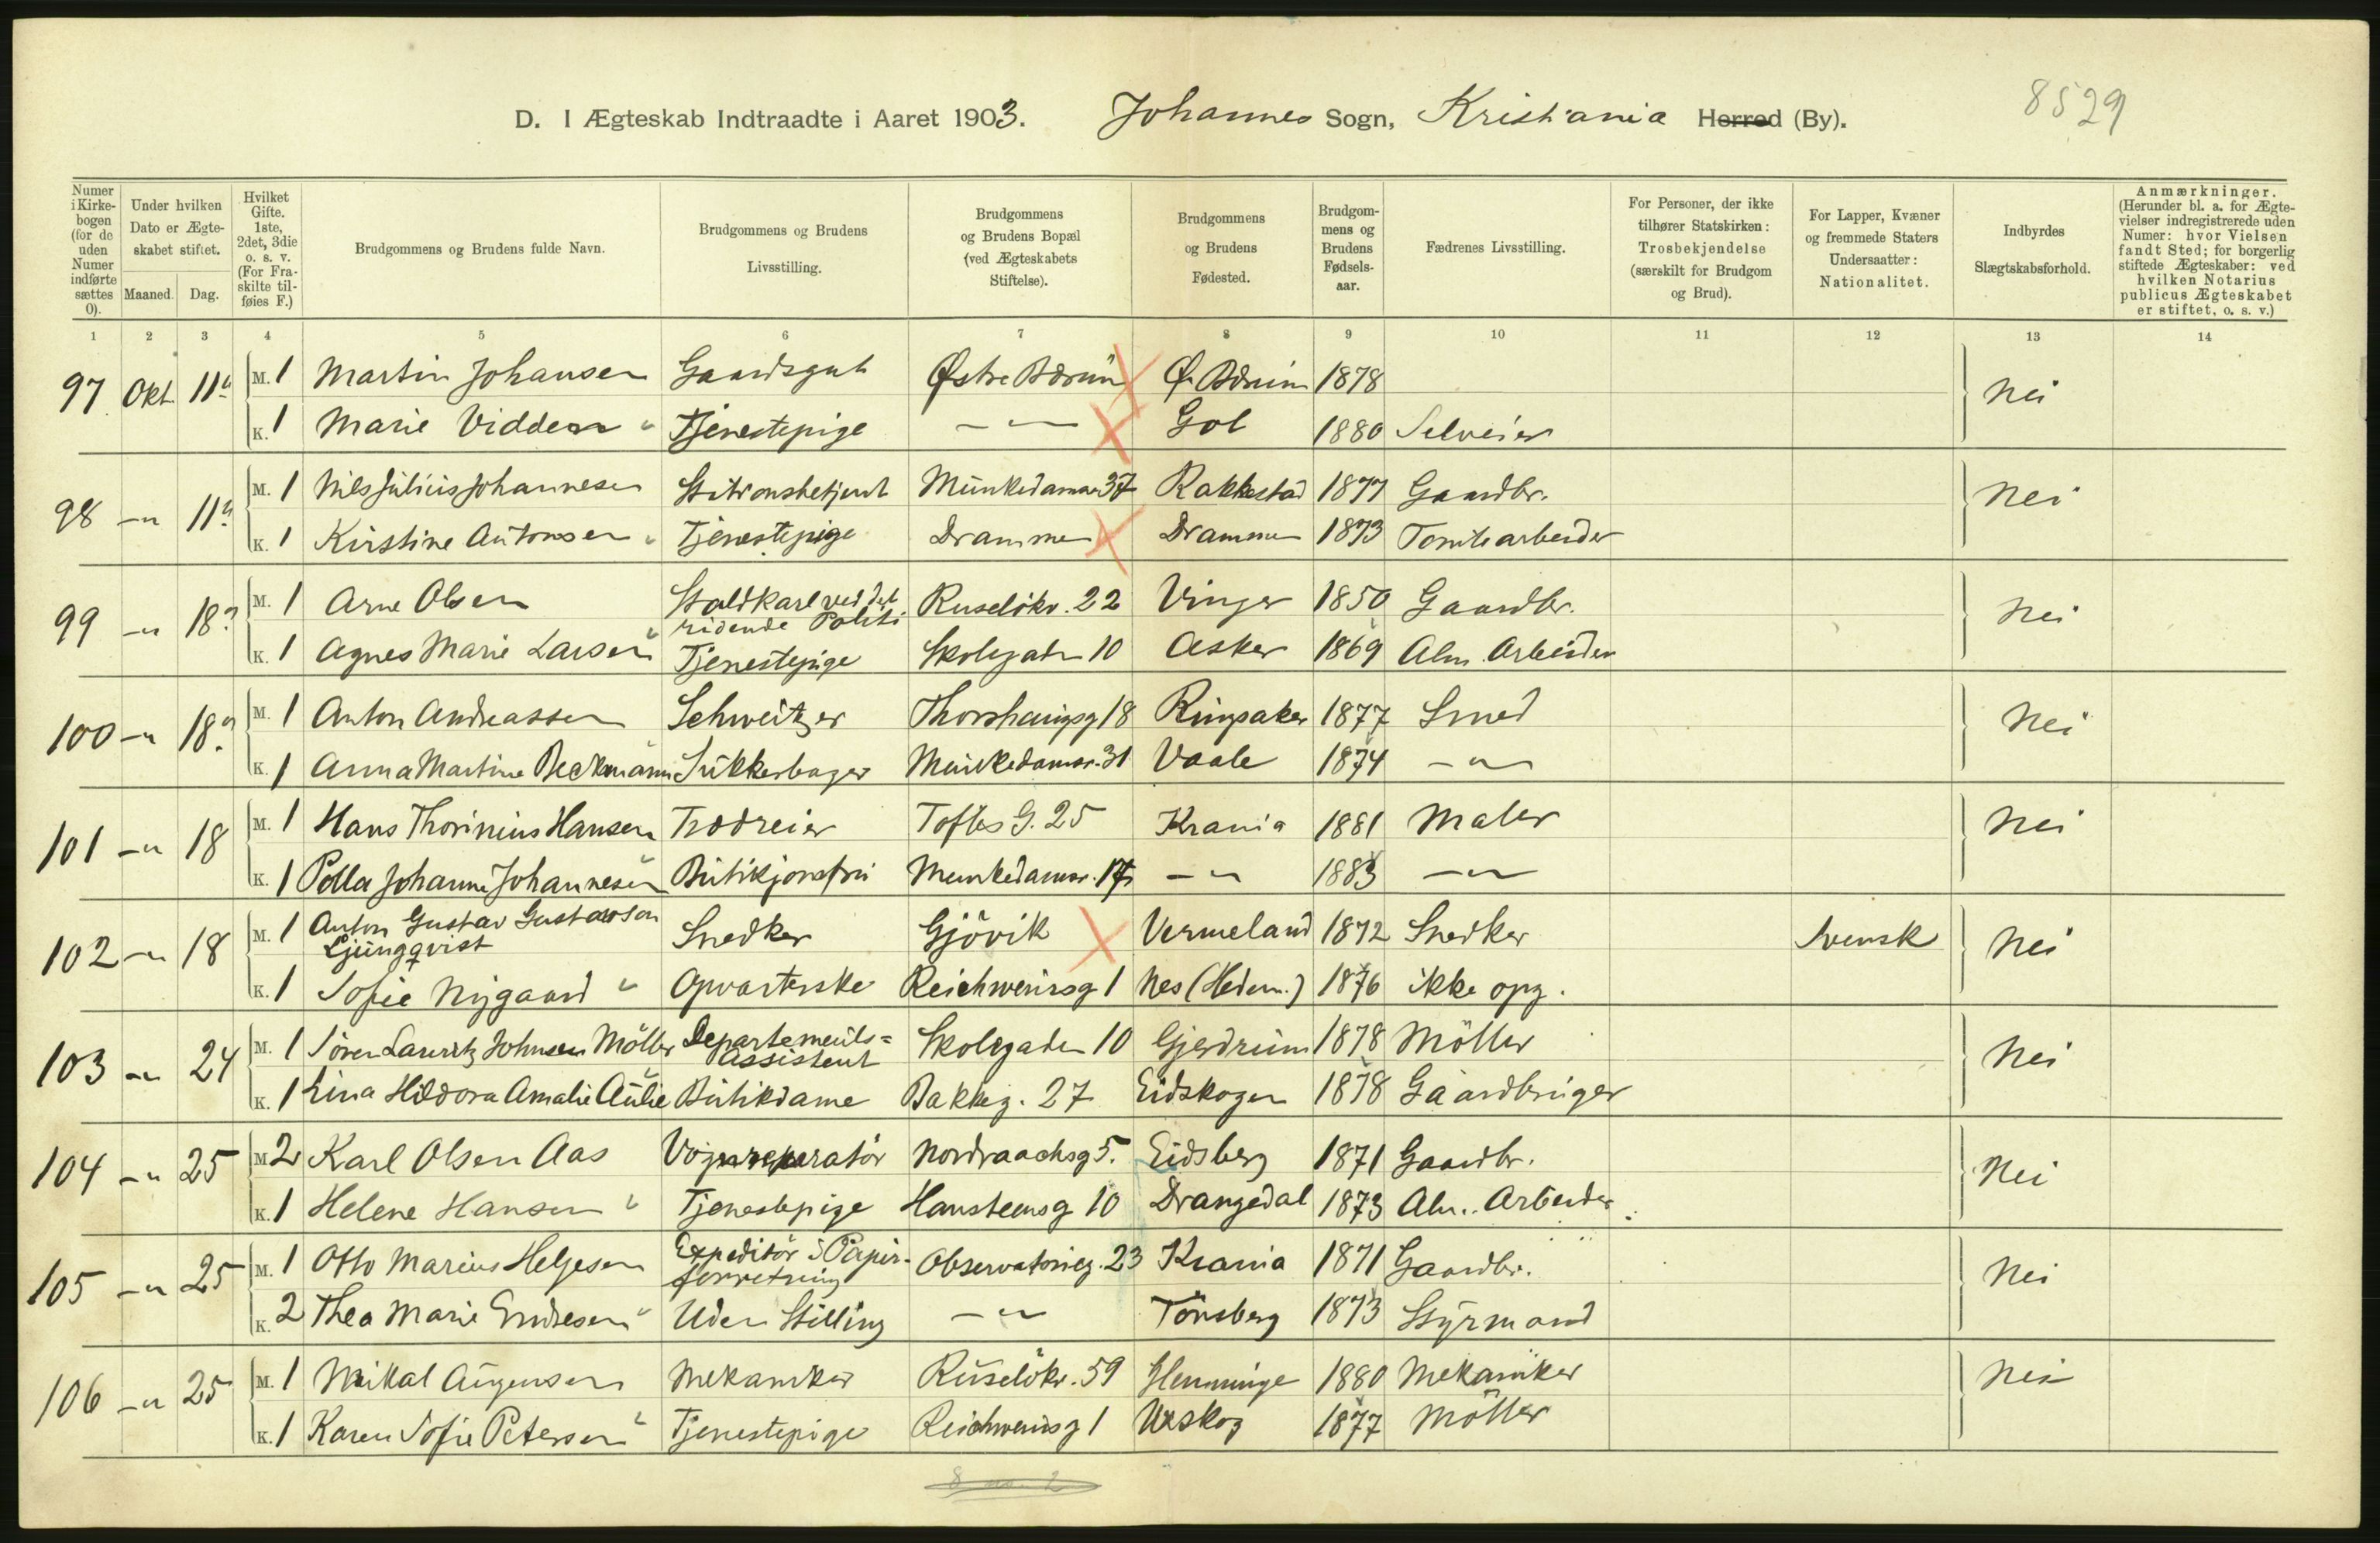 D. I Ægteskab Indtraadte i Aaret 1903. Johannes Sogn, Kristiania Herred (By). 8529
Numer i Kirkebogen (for de uden Numer indførte sættes 0).
Under hvilken Dato er Ægteskabet stiftet.
Maaned. Dag.
Hvilket Gifte. 1ste, 2det, 3die o. s. v. (For Fraskilte tilføies F.)
Brudgommens og Brudens fulde Navn.
Brudgommens og Brudens Livsstilling.
Brudgommens og Brudens Bopæl (ved Ægteskabets Stiftelse).
Brudgommens og Brudens Fødested.
Brudgommens og Brudens Fødselsaar.
Fædrenes Livsstilling.
For Personer, der ikke tilhører Statskirken: Trosbekjendelse (særskilt for Brudgom og Brud).
For Lapper, Kvæner og fremmede Staters Undersaatter: Nationalitet.
Indbyrdes Slægtskabsforhold.
Anmærkninger. (Herunder bl. a. for Ægtevielser indregistrerede uden Numer: hvor Vielsen fandt Sted; for borgerlig stiftede Ægteskaber: ved hvilken Notarius publicus Ægteskabet er stiftet, o. s. v.)
1 2 3 4 5 6 7 8 9 10 11 12 13 14
97 Okt 11 M. 1 Martin Johansen Gaardsgut Østre Bærum Ø. Bærum 1878 Nei
K. 1 Marie Vidden Tjenestepige — " — Gol 1880 Selveier
98 — " 11 M. 1 Nils Julius Johannesen Stationsbetjent Munkedamsv 37 Rakkestad 1877 Gaardbr. Nei
K. 1 Kirstine Antonsen Tjenestepige Drammen Drammen 1873 Tomtearbeider
99 — " 18 M. 1 Arne Olsen Staldkarl ved det ridende Politi Ruseløkv. 22 Vinger 1850 Gaardbr. Nei
K. 1 Agnes Marie Larsen Tjenestepige Skolegaden 10 Asker 1869 Alm. Arbeider
100 — " 18 M. 1 Anton Andreassen Schweitzer Thorshaugsg 18 Ringsaker 1877 Smed Nei
K. 1 Anna Martine Beckmann Sukkerbager Munkedamsv. 31 Vaale 1874 — " —
101 — " 18 M. 1 Hans Thorinius Hansen Trædreier Toftes G. 25 Krania 1881 Maler Nei
K. 1 Polla Johanne Johannesen Butikjomfru Munkedamsv. 17 — " — 1883 — " —
102 — " 18 M. 1 Anton Gustav Gustavson Ljungqvist Snedker Gjövik Vermeland 1872 Snedker Svensk Nei
K. 1 Sofie Nygaard Opvarterske Reichweinsg 1 Nes (Hedem.) 1876 ikke opg.
103 — " 24 M. 1 Sören Lauritz Johnsen Möller Departements= Assistent Skolegaden 10 Gjerdrum 1878 Möller Nei
K. 1 Lina Hildora Amalie Aulie Butikdame Bakkeg. 27 Eidskogen 1878 Gaardbruger
104 — " 25 M. 2 Karl Olsen Aas Vognreparatör Nordraachsg 5. Eidsberg 1871 Gaardbr. Nei
K. 1 Helene Hansen Tjenestepige Hansteensg 10 Drangedal 1873 Alm. Arbeider
105 — " 25 M. 1 Otto Marius Helgesen Expeditör i Papirforretning Observatorieg. 23 Krania 1871 Gaardbr. Nei
K. 2 Thea Marie Endresen Uden Stilling — " — Tönsberg 1873 Styrmand
106 — " 25 M. 1 Mikal Augensen Mekaniker Ruselökv. 59 1880 Mekaniker Nei
K. 1 Karen Sofie Petersen Tjenestepige Reichweinsg 1 Urskog 1877 Möller